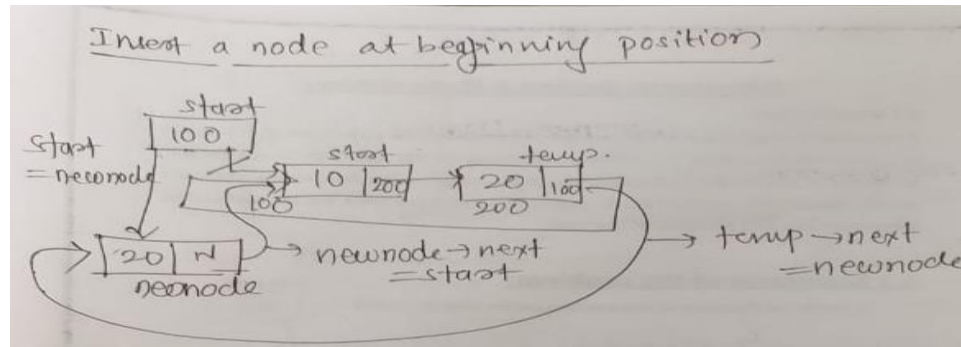 Insert a node at begginning position
start
100
start
= newnode
start
10 200
100
temp.
20 100
200
20 N
newnode
newnode → next
= start
→ temp → next
= newnode